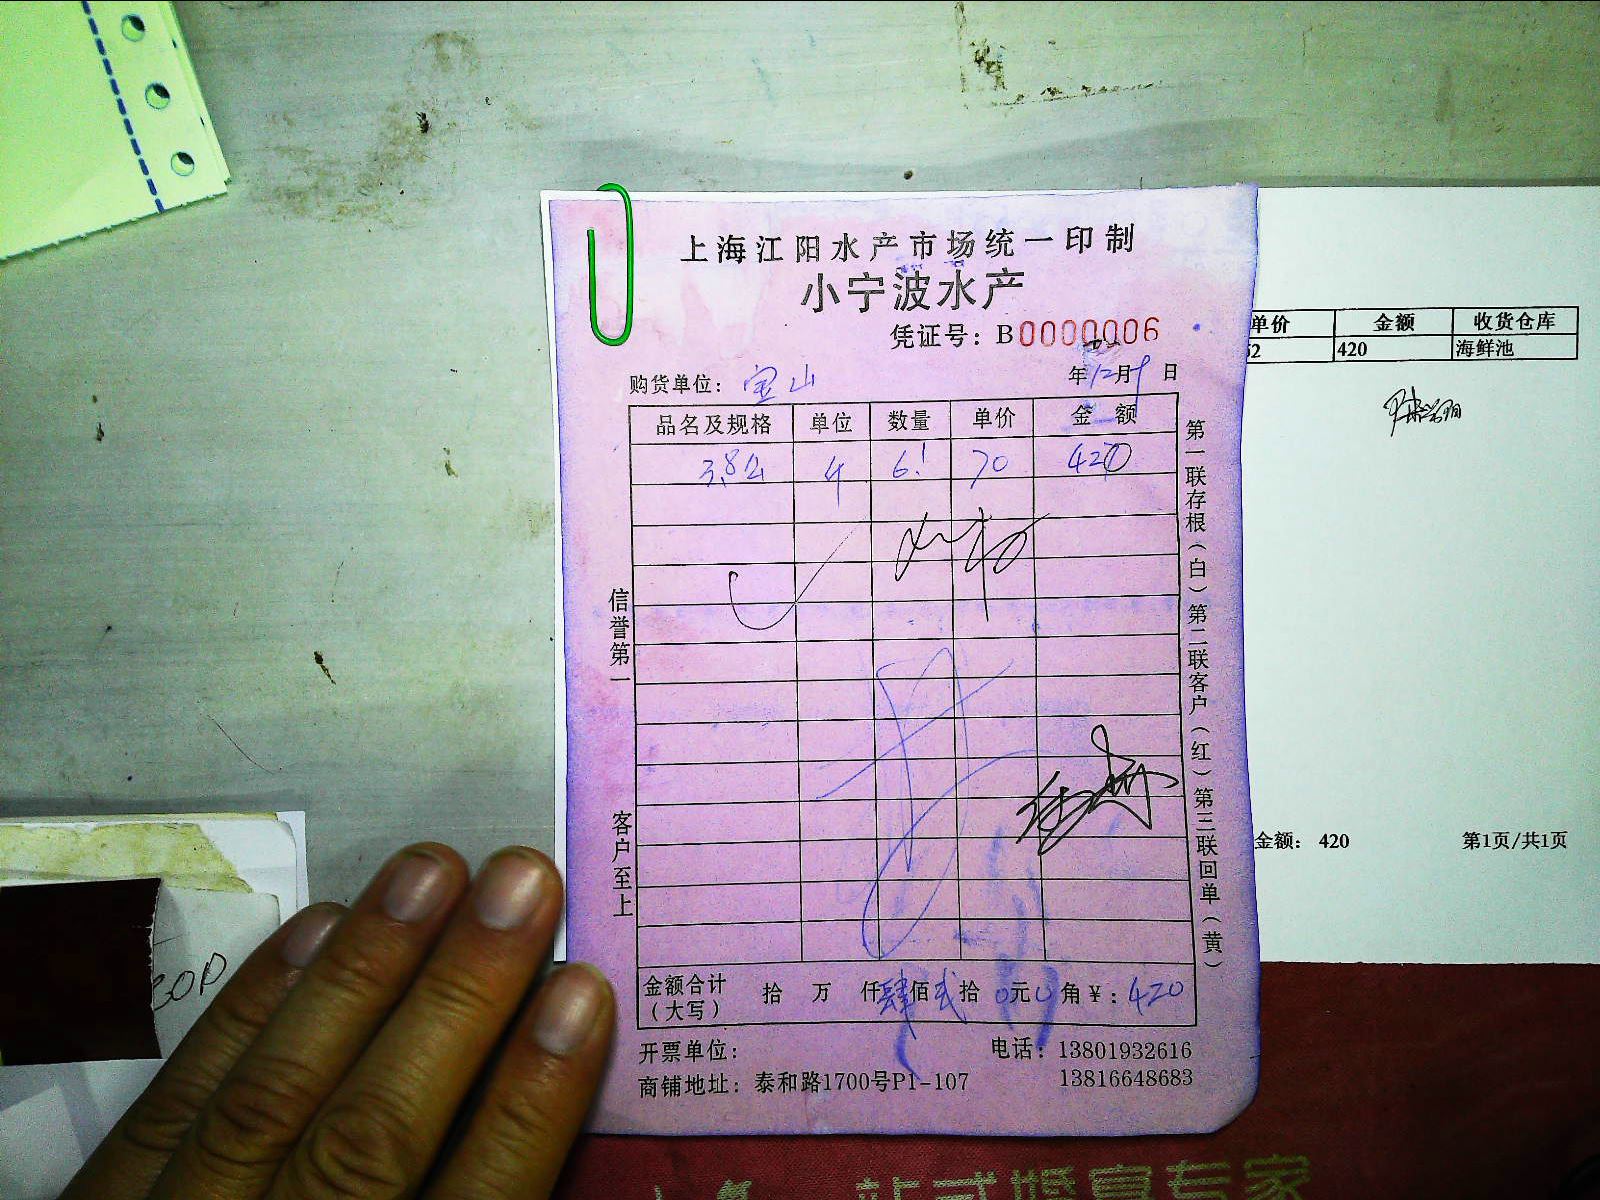 上海江阳水产市场统一印制
小宁波水产
凭证号：B0000006
购货单位：宝山
年12月9日
品名及规格 单位 数量 单价 金额
3.8公 4 6! 70 420
信誉第一
客户至上
第一联存根（白）第二联客户（红）第三联回单（黄）
金额合计（大写） 拾 万 仟肆佰贰拾0元0角￥：420
开票单位：
电话：13801932616
13816648683
商铺地址：泰和路1700号P1-107
单价 金额 收货仓库
52 420 海鲜池
金额： 420 第1页/共1页
30D
站式婚宴专家